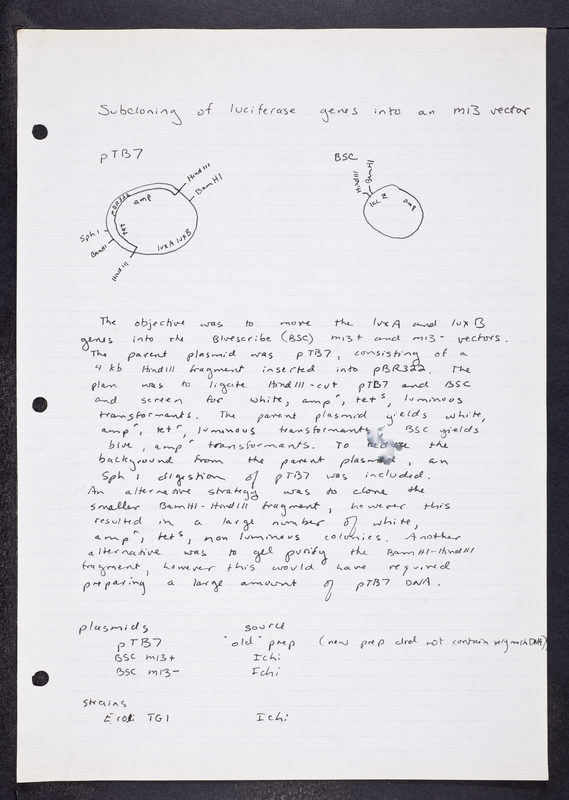 Subcloning of luciferase genes into an m13 vector
pTB7
HindIII
BamHI
pBR322
amp
tet
SphI
BamHI
HindIII
luxA luxB
BSC
HindIII
BamHI
lac Z
amp
The objective was to move the luxA and luxB
genes into the Bluescribe (BSC) m13+ and m13- vectors.
The parent plasmid was pTB7, consisting of a
4 kb HindIII fragment inserted into pBR322. The
plan was to ligate HindIII-cut pTB7 and BSC
and screen for white, ampʳ, tetˢ, luminous
transformants. The parent plasmid yields white,
ampʳ, tetʳ, luminous transformants BSC yields
blue, ampʳ transformants. To the
background from the parent plasmid, an
Sph I digestion of pTB7 was included.
An alternative strategy was to clone the
smaller BamHI-HindIII fragment, however this
resulted in a large number of white,
ampʳ, tetˢ, non luminous colonies. Another
alternative was to gel purify the BamHI-HindIII
fragment, however this would have required
preparing a large amount of pTB7 DNA.
plasmids source
pTB7 "old" prep (new prep did not contain very much DNA)
BSC m13+ Ichi
BSC m13- Ichi
strains
E coli TG1 Ichi